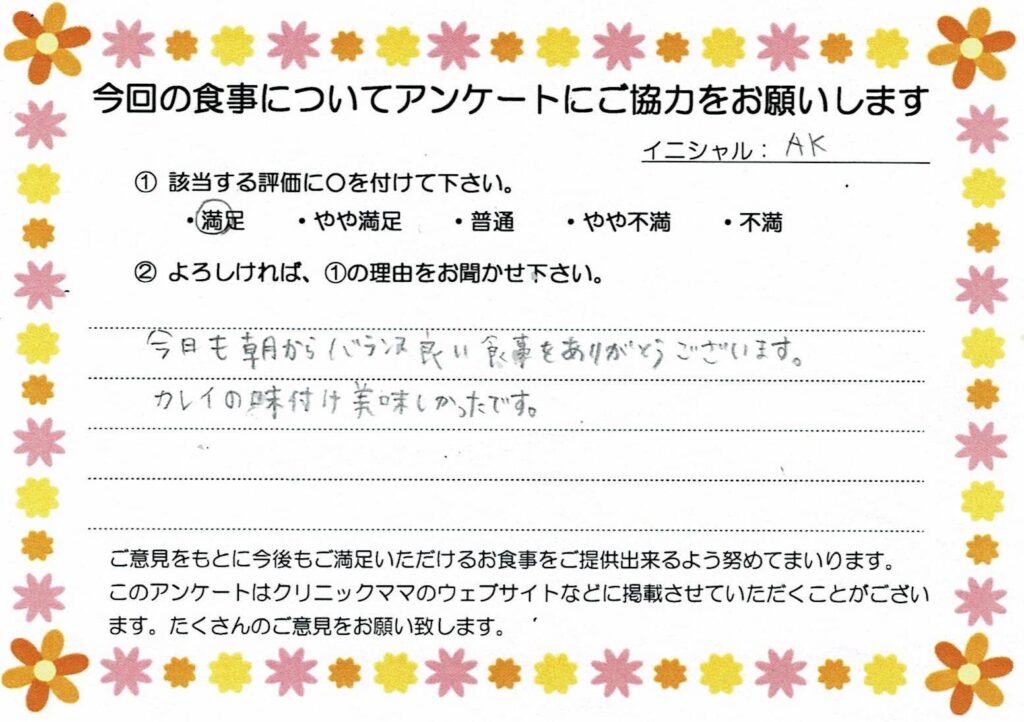 今回の食事についてアンケートにご協力をお願いします
イニシャル： AK
① 該当する評価に○を付けて下さい。
・満足 ・やや満足 ・普通 ・やや不満 ・不満
② よろしければ、①の理由をお聞かせ下さい。
今日も朝からバランス良い食事をありがとうございます。
カレイの味付け美味しかったです。
ご意見をもとに今後もご満足いただけるお食事をご提供出来るよう努めてまいります。
このアンケートはクリニックママのウェブサイトなどに掲載させていただくことがござい
ます。たくさんのご意見をお願い致します。